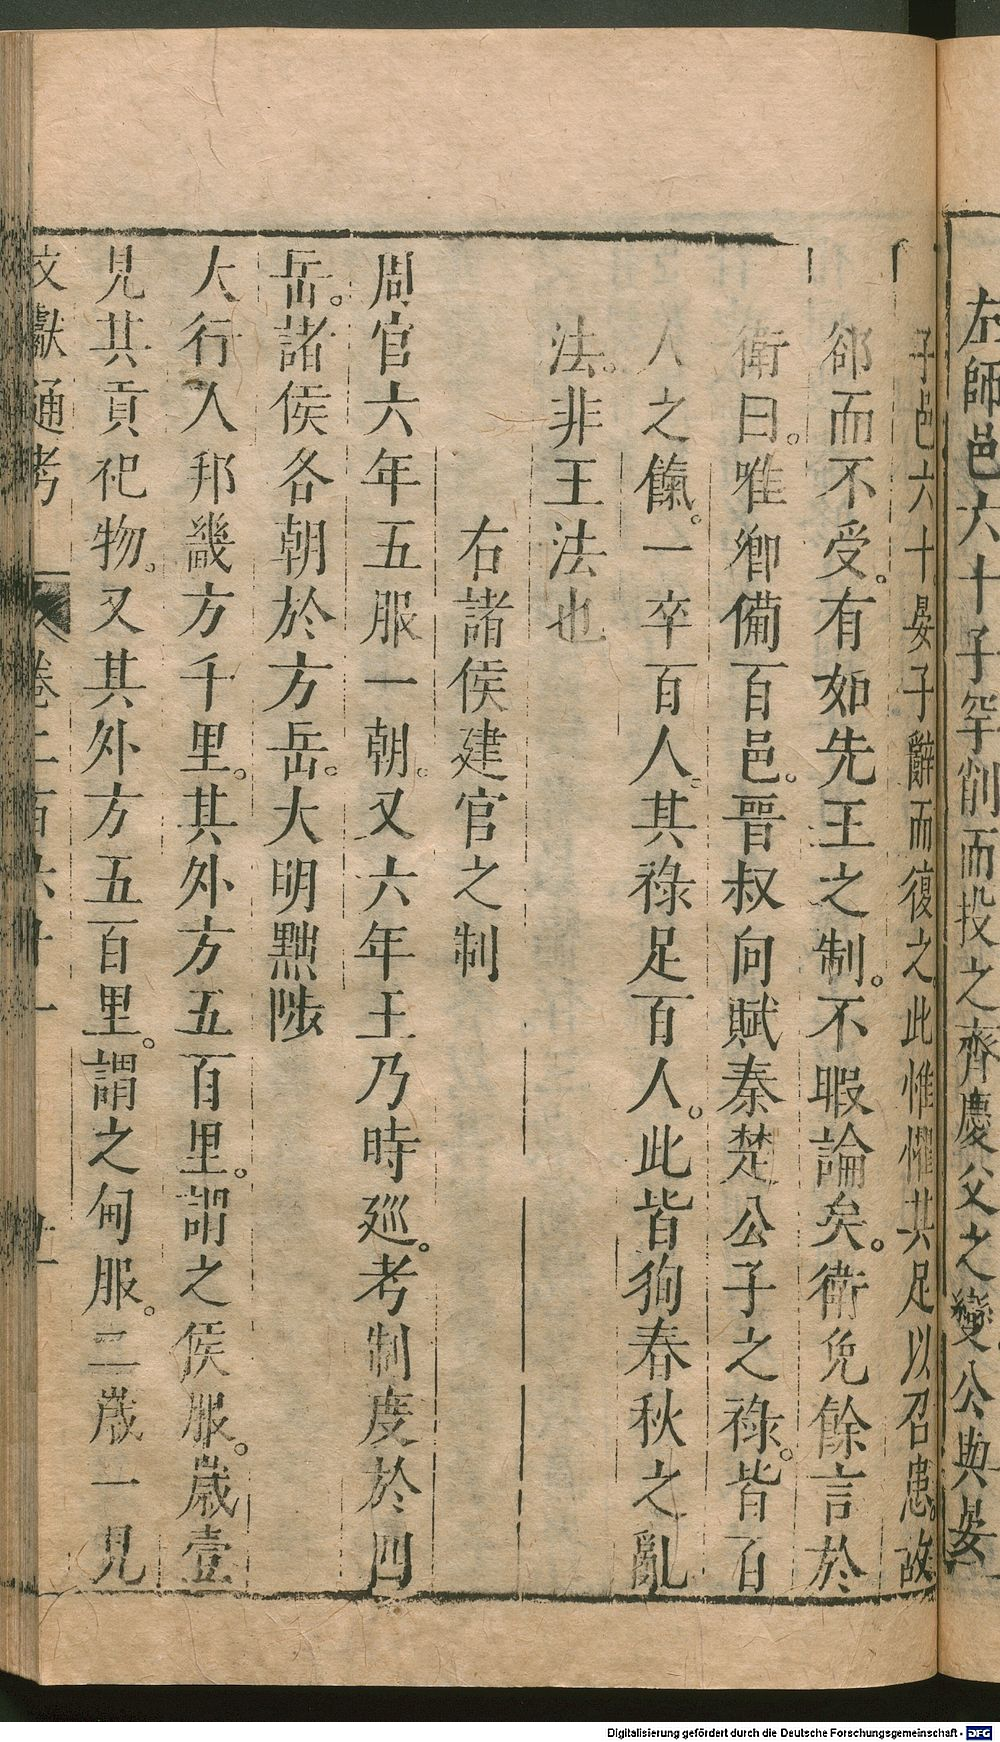 左師邑六十子罕削而投之齊慶父之變公與晏
子邑六十晏子辭而復之此惟懼其足以召患故
郤而不受。有如先王之制。不暇論矣。衛免餘言於
衛曰。唯卿備百邑。晉叔向賦秦楚公子之祿。皆百
人之餼。一卒百人。其祿足百人。此皆狥春秋之亂
法。非王法也
右諸侯建官之制
周官六年五服一朝。又六年王乃時廵。考制度於四
岳。諸侯各朝於方岳。大明黜陟
大行人邦畿方千里。其外方五百里。謂之侯服。歲壹
見其貢祀物。又其外方五百里。謂之甸服。二歲一見
文獻通考 卷二百六十一
Digitalisierung gefördert durch die Deutsche Forschungsgemeinschaft - DFG